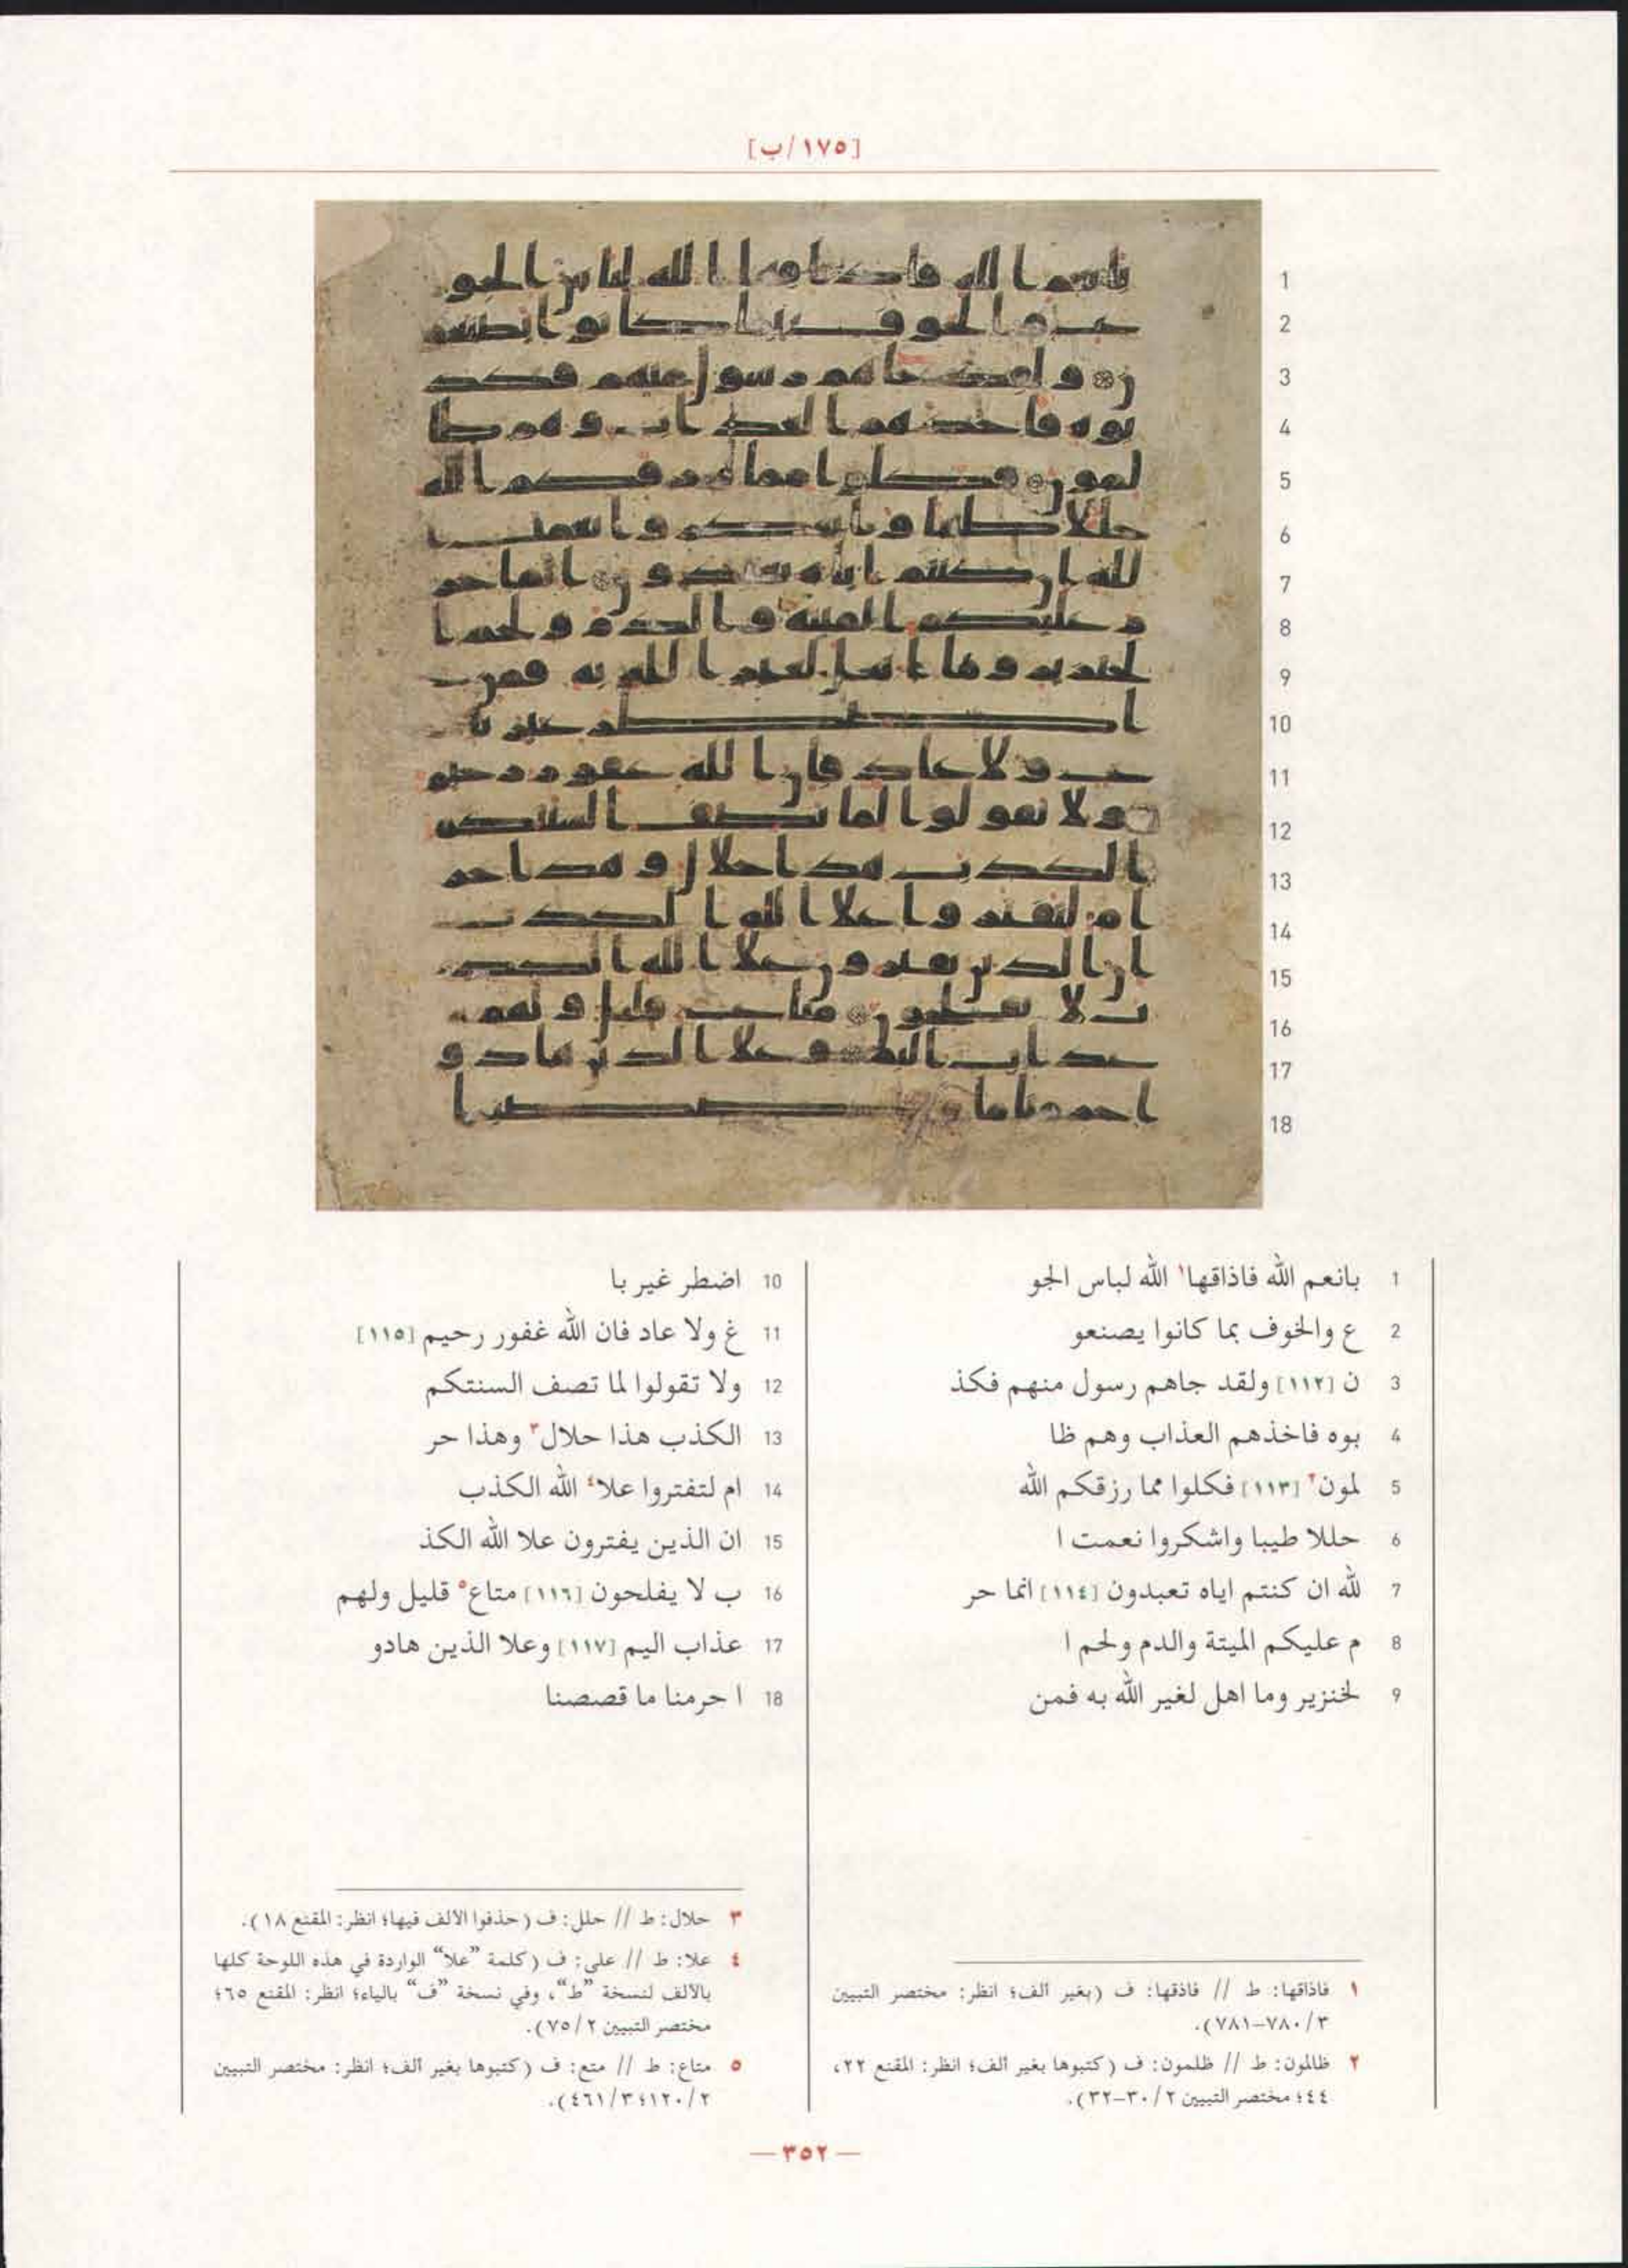 [١٧٥/ب]
1 بانعم الله فاذاقها١ الله لباس الجو
2 ع والخوف بما كانوا يصنعو
3 ن [١١٢] ولقد جاهم رسول منهم فكذ
4 بوه فاخذهم العذاب وهم ظا
5 لمون٢ [١١٣] فكلوا مما رزقكم الله
6 حللا طيبا واشكروا نعمت ا
7 لله ان كنتم اياه تعبدون [١١٤] انما حر
8 م عليكم الميتة والدم ولحم ا
9 لخنزير وما اهل لغير الله به فمن
10 اضطر غير با
11 غ ولا عاد فان الله غفور رحيم [١١٥]
12 ولا تقولوا لما تصف السنتكم
13 الكذب هذا حلال٣ وهذا حر
14 ام لتفتروا علا٤ الله الكذب
15 ان الذين يفترون علا الله الكذ
16 ب لا يفلحون [١١٦] متاع٥ قليل ولهم
17 عذاب اليم [١١٧] وعلا الذين هادو
18 ا حرمنا ما قصصنا
١ فاذاقها: ط // فاذقها: ف (بغير ألف؛ انظر: مختصر التبيين
٣/ ٧٨٠–٧٨١).
٢ ظالمون: ط // ظلمون: ف (كتبوها بغير ألف؛ انظر: المقنع ٢٢،
٤٤؛ مختصر التبيين ٢/ ٣٠–٣٢).
٣ حلال: ط // حلل: ف (حذفوا الالف فيها؛ انظر: المقنع ١٨).
٤ علا: ط // على: ف (كلمة ”علا“ الواردة في هذه اللوحة كلها
بالألف لنسخة ”ط“، وفي نسخة ”ف“ بالياء؛ انظر: المقنع ٦٥؛
مختصر التبيين ٢/ ٧٥).
٥ متاع: ط // متع: ف (كتبوها بغير ألف؛ انظر: مختصر التبيين
٢/ ١٢٠؛ ٣/ ٤٦١).
— ٣٥٢ —